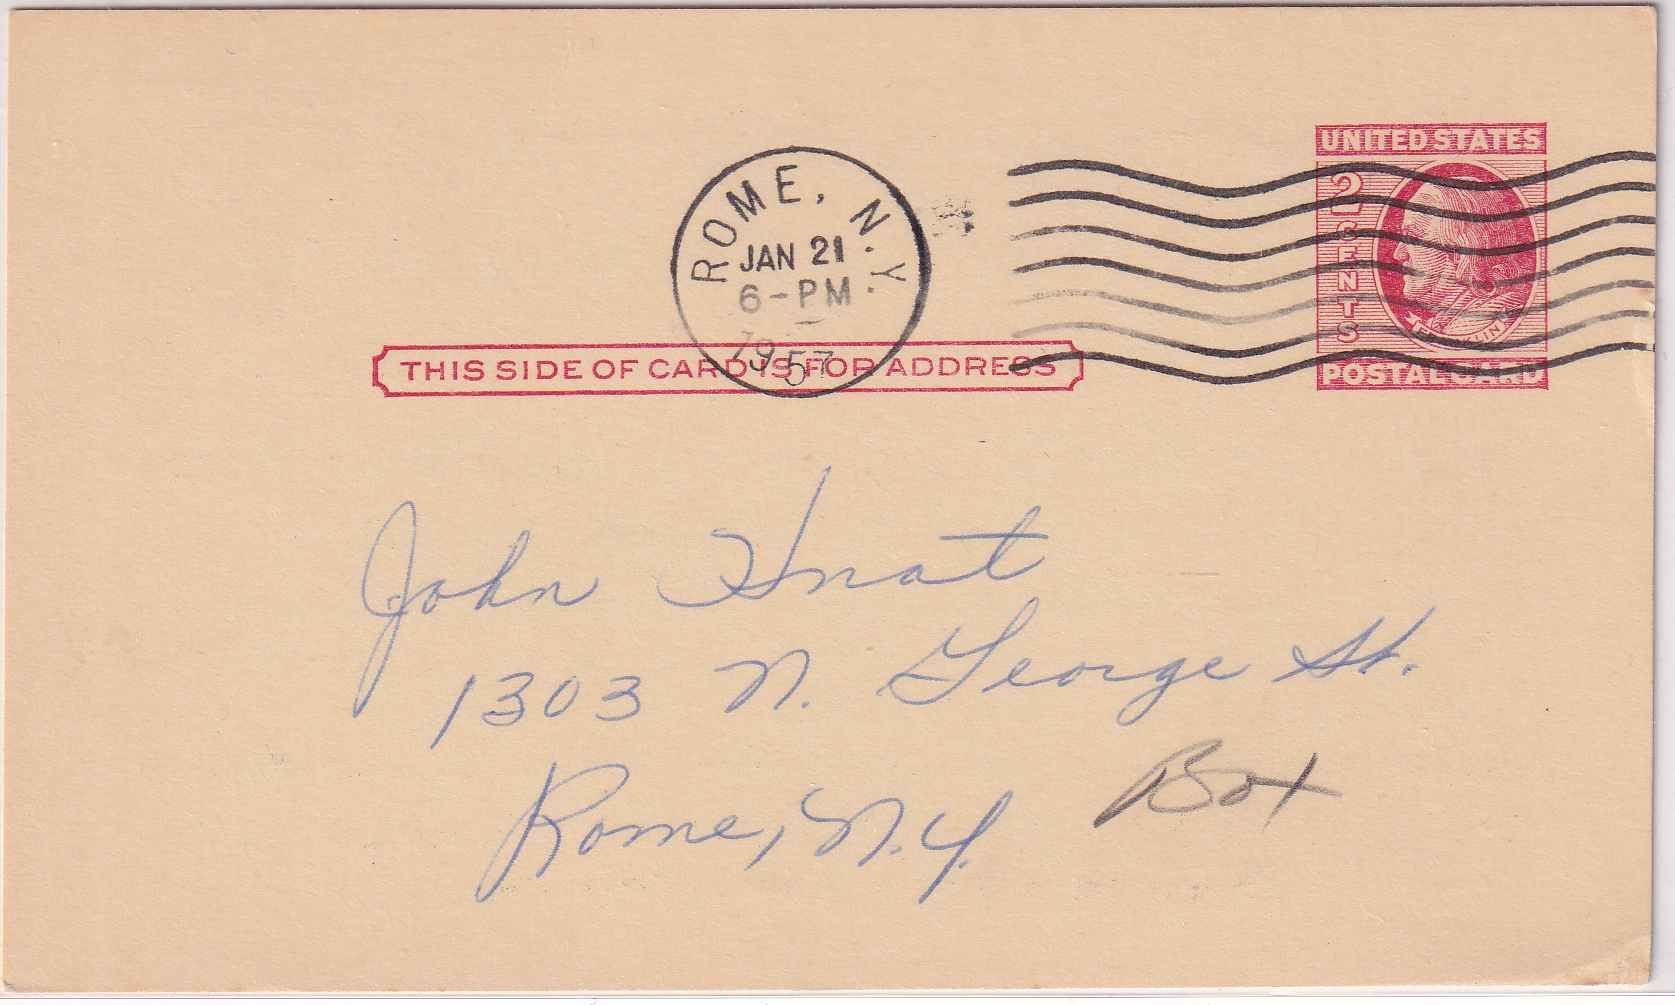 UNITED STATES
2 CENTS
FRANKLIN
POSTAL CARD
ROME, N.Y.
JAN 21
6-PM
1957
THIS SIDE OF CARD IS FOR ADDRESS
John Hnat
1303 N. George St.
Rome, N.Y.
Box